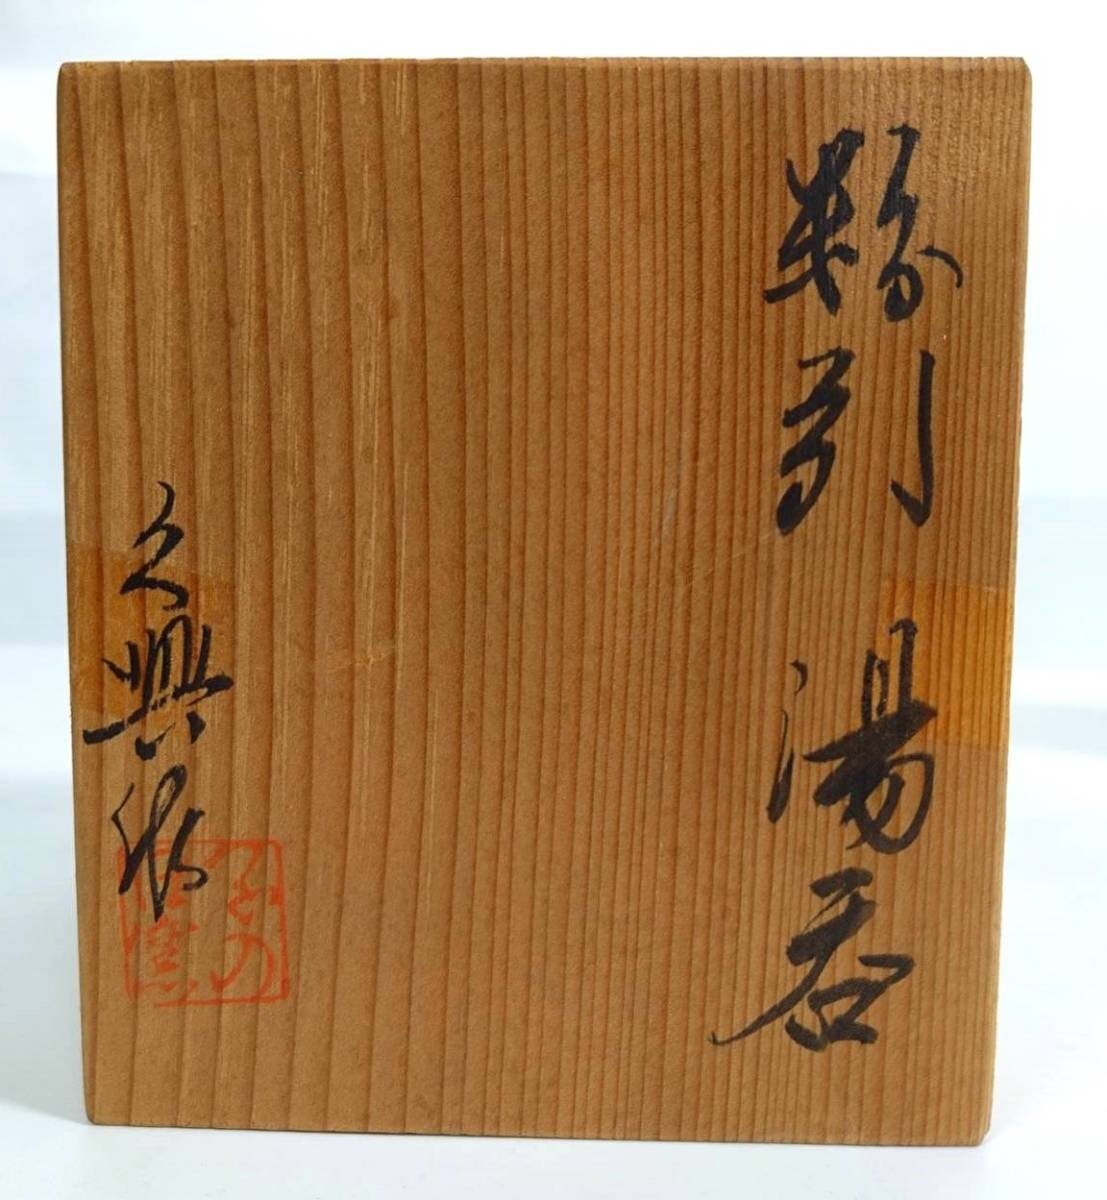 粉引 湯呑
久興作